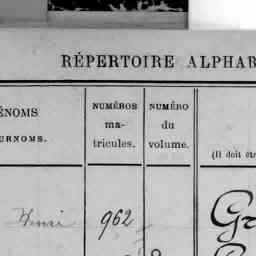 RÉPERTOIRE ALPHAB
ÉNOMS
URNOMS.
NUMÉROS
ma-
tricules.
NUMÉRO
du
volume.
(Il doit êtr
Henri
962
Gr